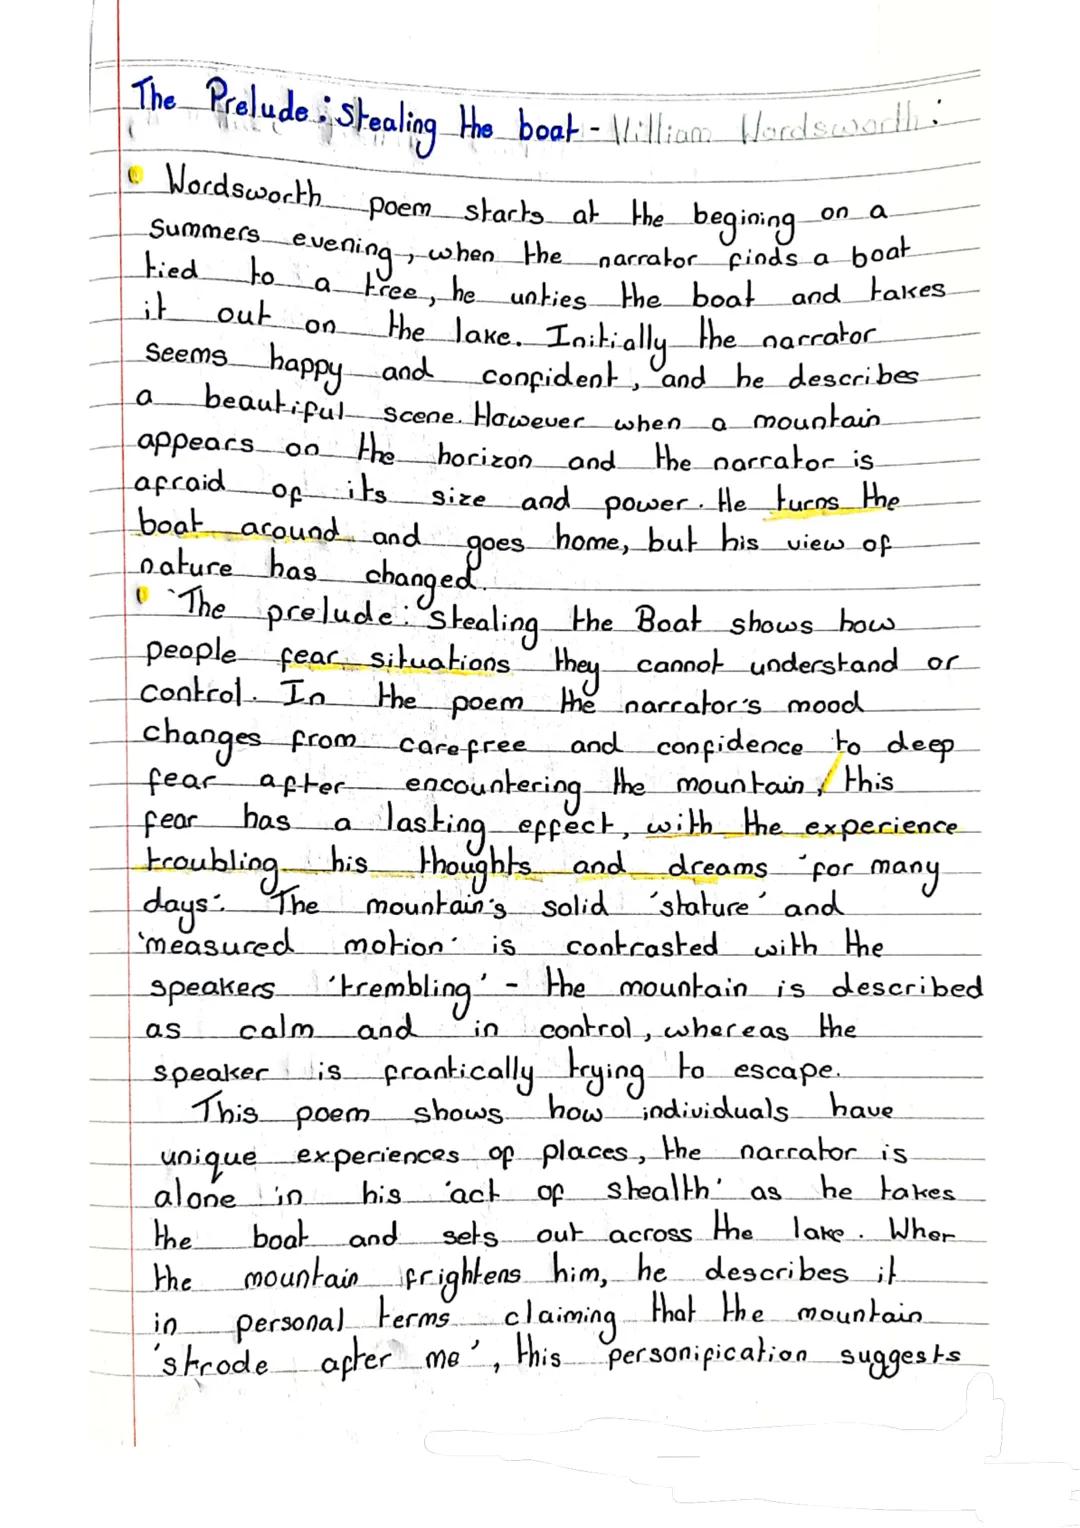 The Prelude : Stealing the boat - William Wordsworth :
Wordsworth poem starts at the begining on a
Summers evening, when the narrator finds a boat
tied to a tree, he unties the boat and takes
it out on the lake. Initially the narrator
seems happy and confident, and he describes
a beautiful scene. However when a mountain
appears on the horizon and the narrator is
afraid of its size and power. He turns the
boat around and goes home, but his view of
nature has changed.
'The prelude : Stealing the Boat shows how
people fear situations they cannot understand or
control. In the poem the narrator's mood
changes from carefree and confidence to deep
fear after encountering the mountain, / this
fear has a lasting effect, with the experience
troubling his thoughts and dreams 'for many
days'. The mountain's solid 'stature' and
'measured motion' is contrasted with the
speakers 'trembling' - the mountain is described
as calm and in control, whereas the
speaker is frantically trying to escape.
This poem shows how individuals have
unique experiences of places, the narrator is
alone in his 'act of stealth' as he takes
the boat and sets out across the lake. When
the mountain frightens him, he describes it
in personal terms claiming that the mountain
'strode after me', this personification suggests